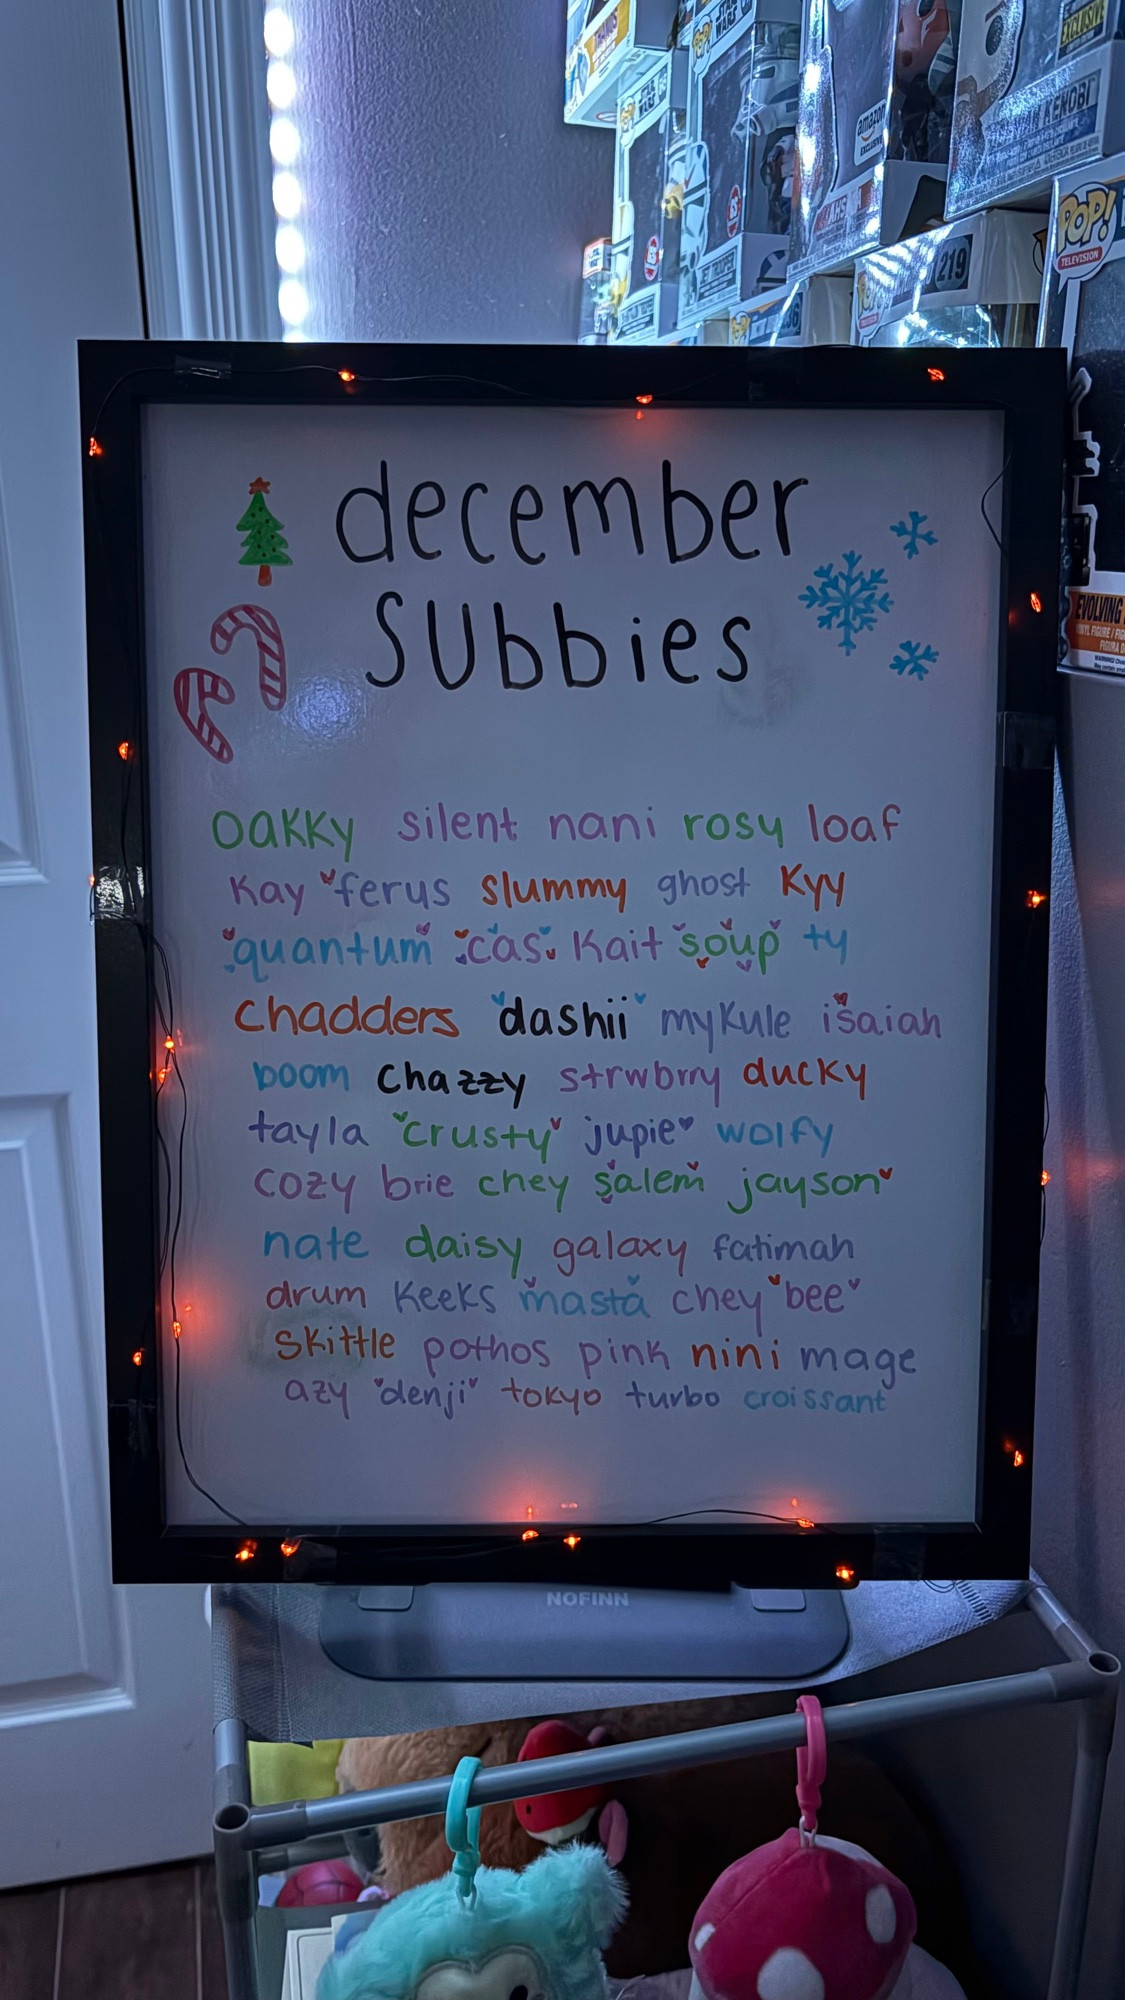 STAR WARS
EXCLUSIVE
KENOBI
amazon
EXCLUSIVE
JET TROOPER
219
POP!
TELEVISION
EVOLVING
december
subbies
oakky silent nani rosy loaf
kay ferus slummy ghost kyy
quantum cas kait soup ty
chadders dashii mykule isaiah
boom chazzy strwbrry ducky
tayla crusty jupie wolfy
cozy brie chey salem jayson
nate daisy galaxy fatimah
drum keeks masta chey bee
skittle pothos pink nini mage
azy denji tokyo turbo croissant
NOFINN